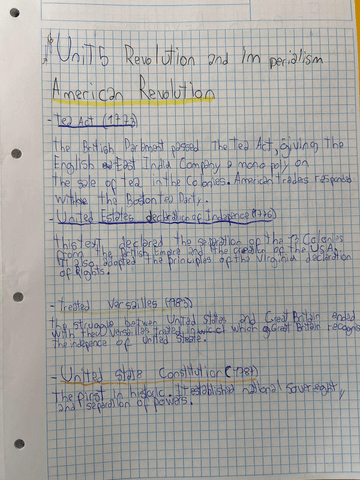 Unit 5 Revolution and Imperialism
American Revolution
- Tea Act (1773)
The British Parliment passed The Tea Act, giving The
English East India Company a monopoly on
the sale of Tea in the Colonies. American Trades responded
with the Boston Tea Party.
- United Estates declaration of Indepence (1776)
This Text declared the separation of the 13 Colonies
from the British Empire and the creation of the U.S.A.
It also adopted the principles of the Virginia declaration
of Rights.
- Treated Versailles (1983)
The struggle betwen United States and Great Britain ended
with the Versailles Trated, in which Great Britain recognise
the indepence of United Steate.
- United State Constitution (1787)
The first in historic. It established national Sovereigty,
and separation of powers.